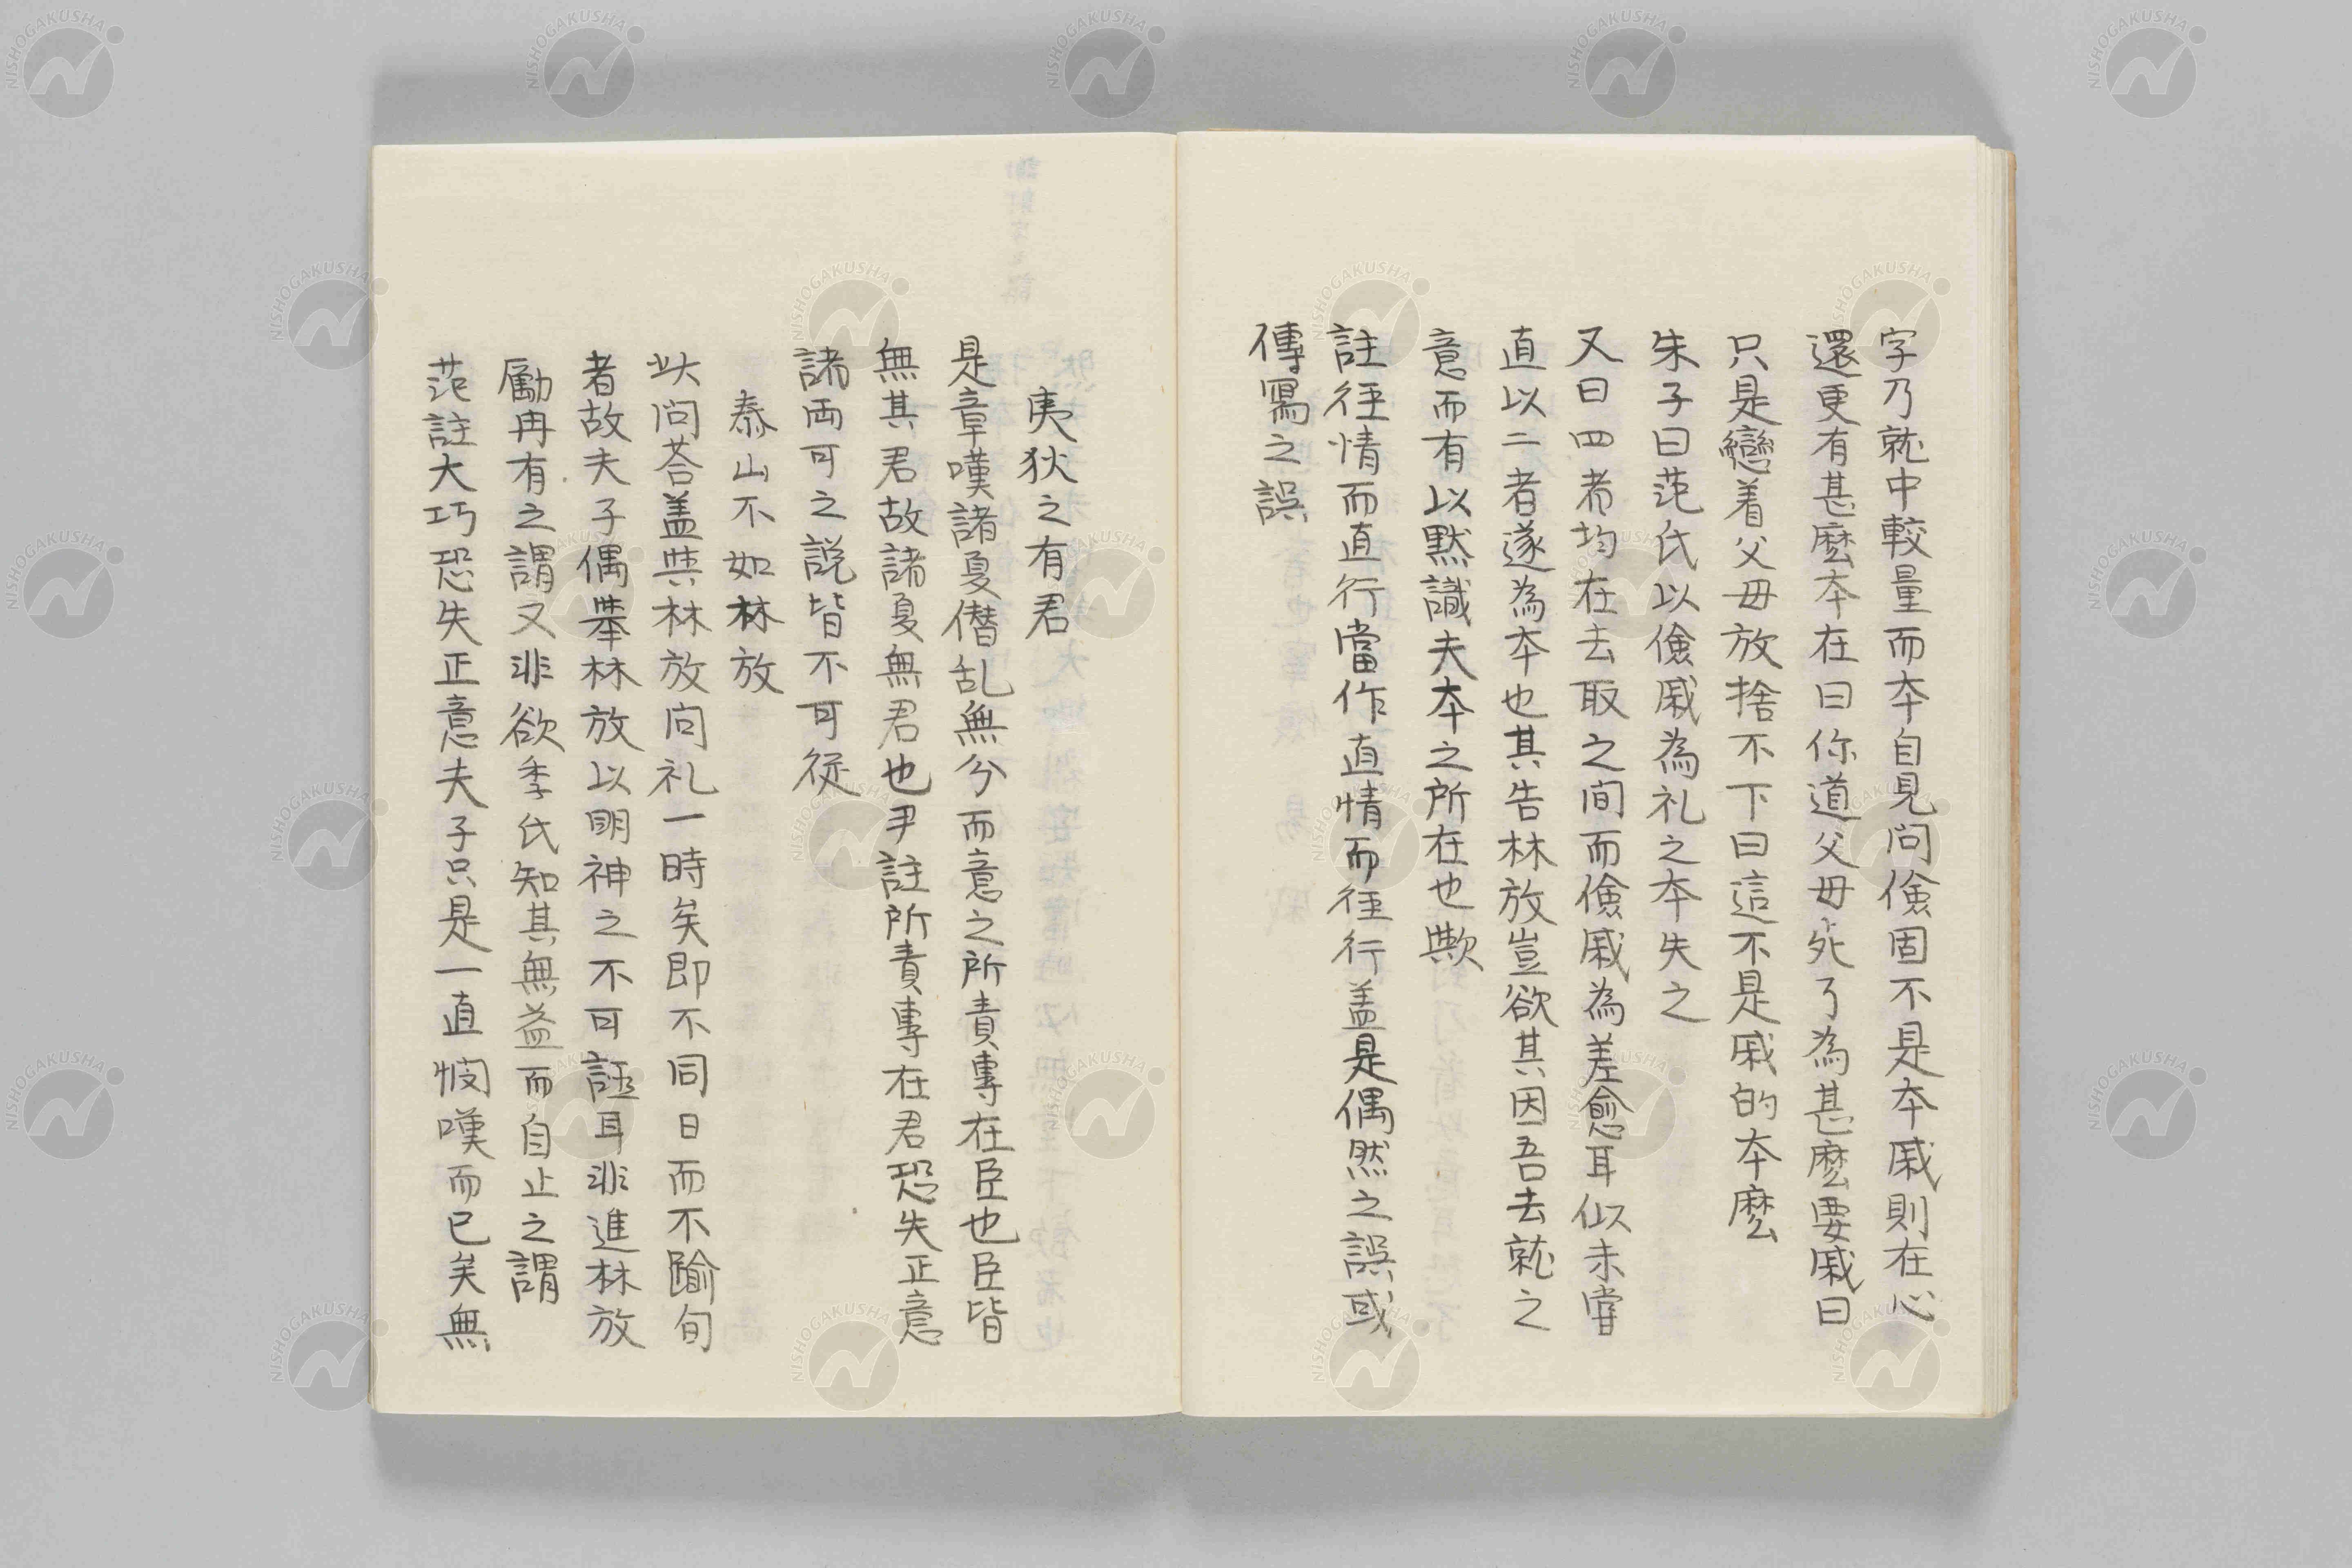 字乃就中較量而本自見問儉固不是本戚則在心
還更有甚麽本在曰你道父母死了為甚麽要戚曰
只是戀着父母放捨不下曰這不是戚的本麽
朱子曰范氏以儉戚為礼之本失之
又曰四者均在去取之間而儉戚為差愈耳似未甞
直以二者遂為本也其告林放豈欲其因吾去就之
意而有以黙識夫本之所在也歟
註徑情而直行當作直情而徑行盖是偶然之誤或
傳寫之誤
夷狄之有君
是章嘆諸夏僭乱無分而意之所責專在臣也臣皆
無其君故諸夏無君也尹註所責專在君恐失正意
諸両可之説皆不可従
泰山不如林放
此問荅盖與林放问礼一時矣即不同日而不踰旬
者故夫子偶舉林放以明神之不可誣耳非進林放
勵冉有之謂又非欲季氏知其無益而自止之謂
范註大巧恐失正意夫子只是一直悯嘆而已矣無